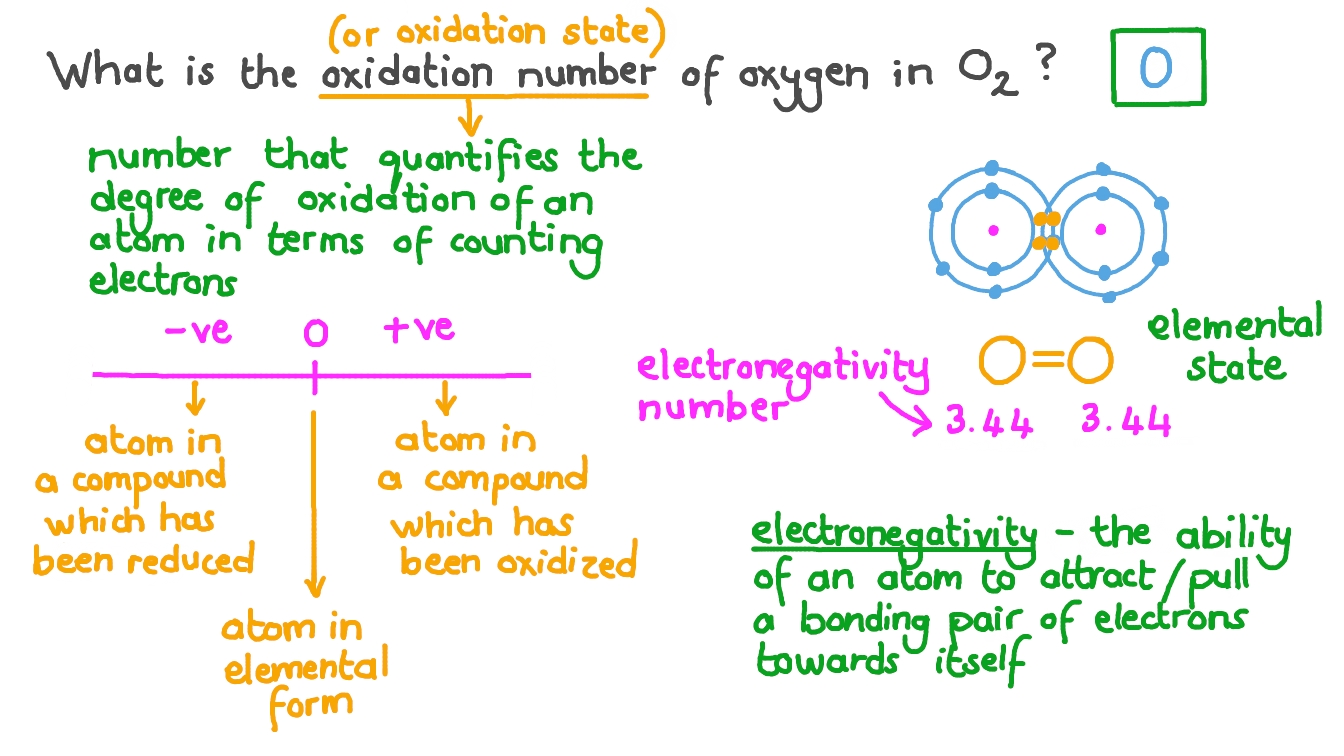 (or oxidation state)
What is the oxidation number of oxygen in O₂? 0
number that quantifies the
degree of oxidation of an
atom in terms of counting
electrons
-ve 0 +ve
atom in
a compound
which has
been reduced
atom in
elemental
form
atom in
a compound
which has
been oxidized
O=O
elemental
state
electronegativity
number
3.44 3.44
electronegativity - the ability
of an atom to attract/pull
a bonding pair of electrons
towards itself